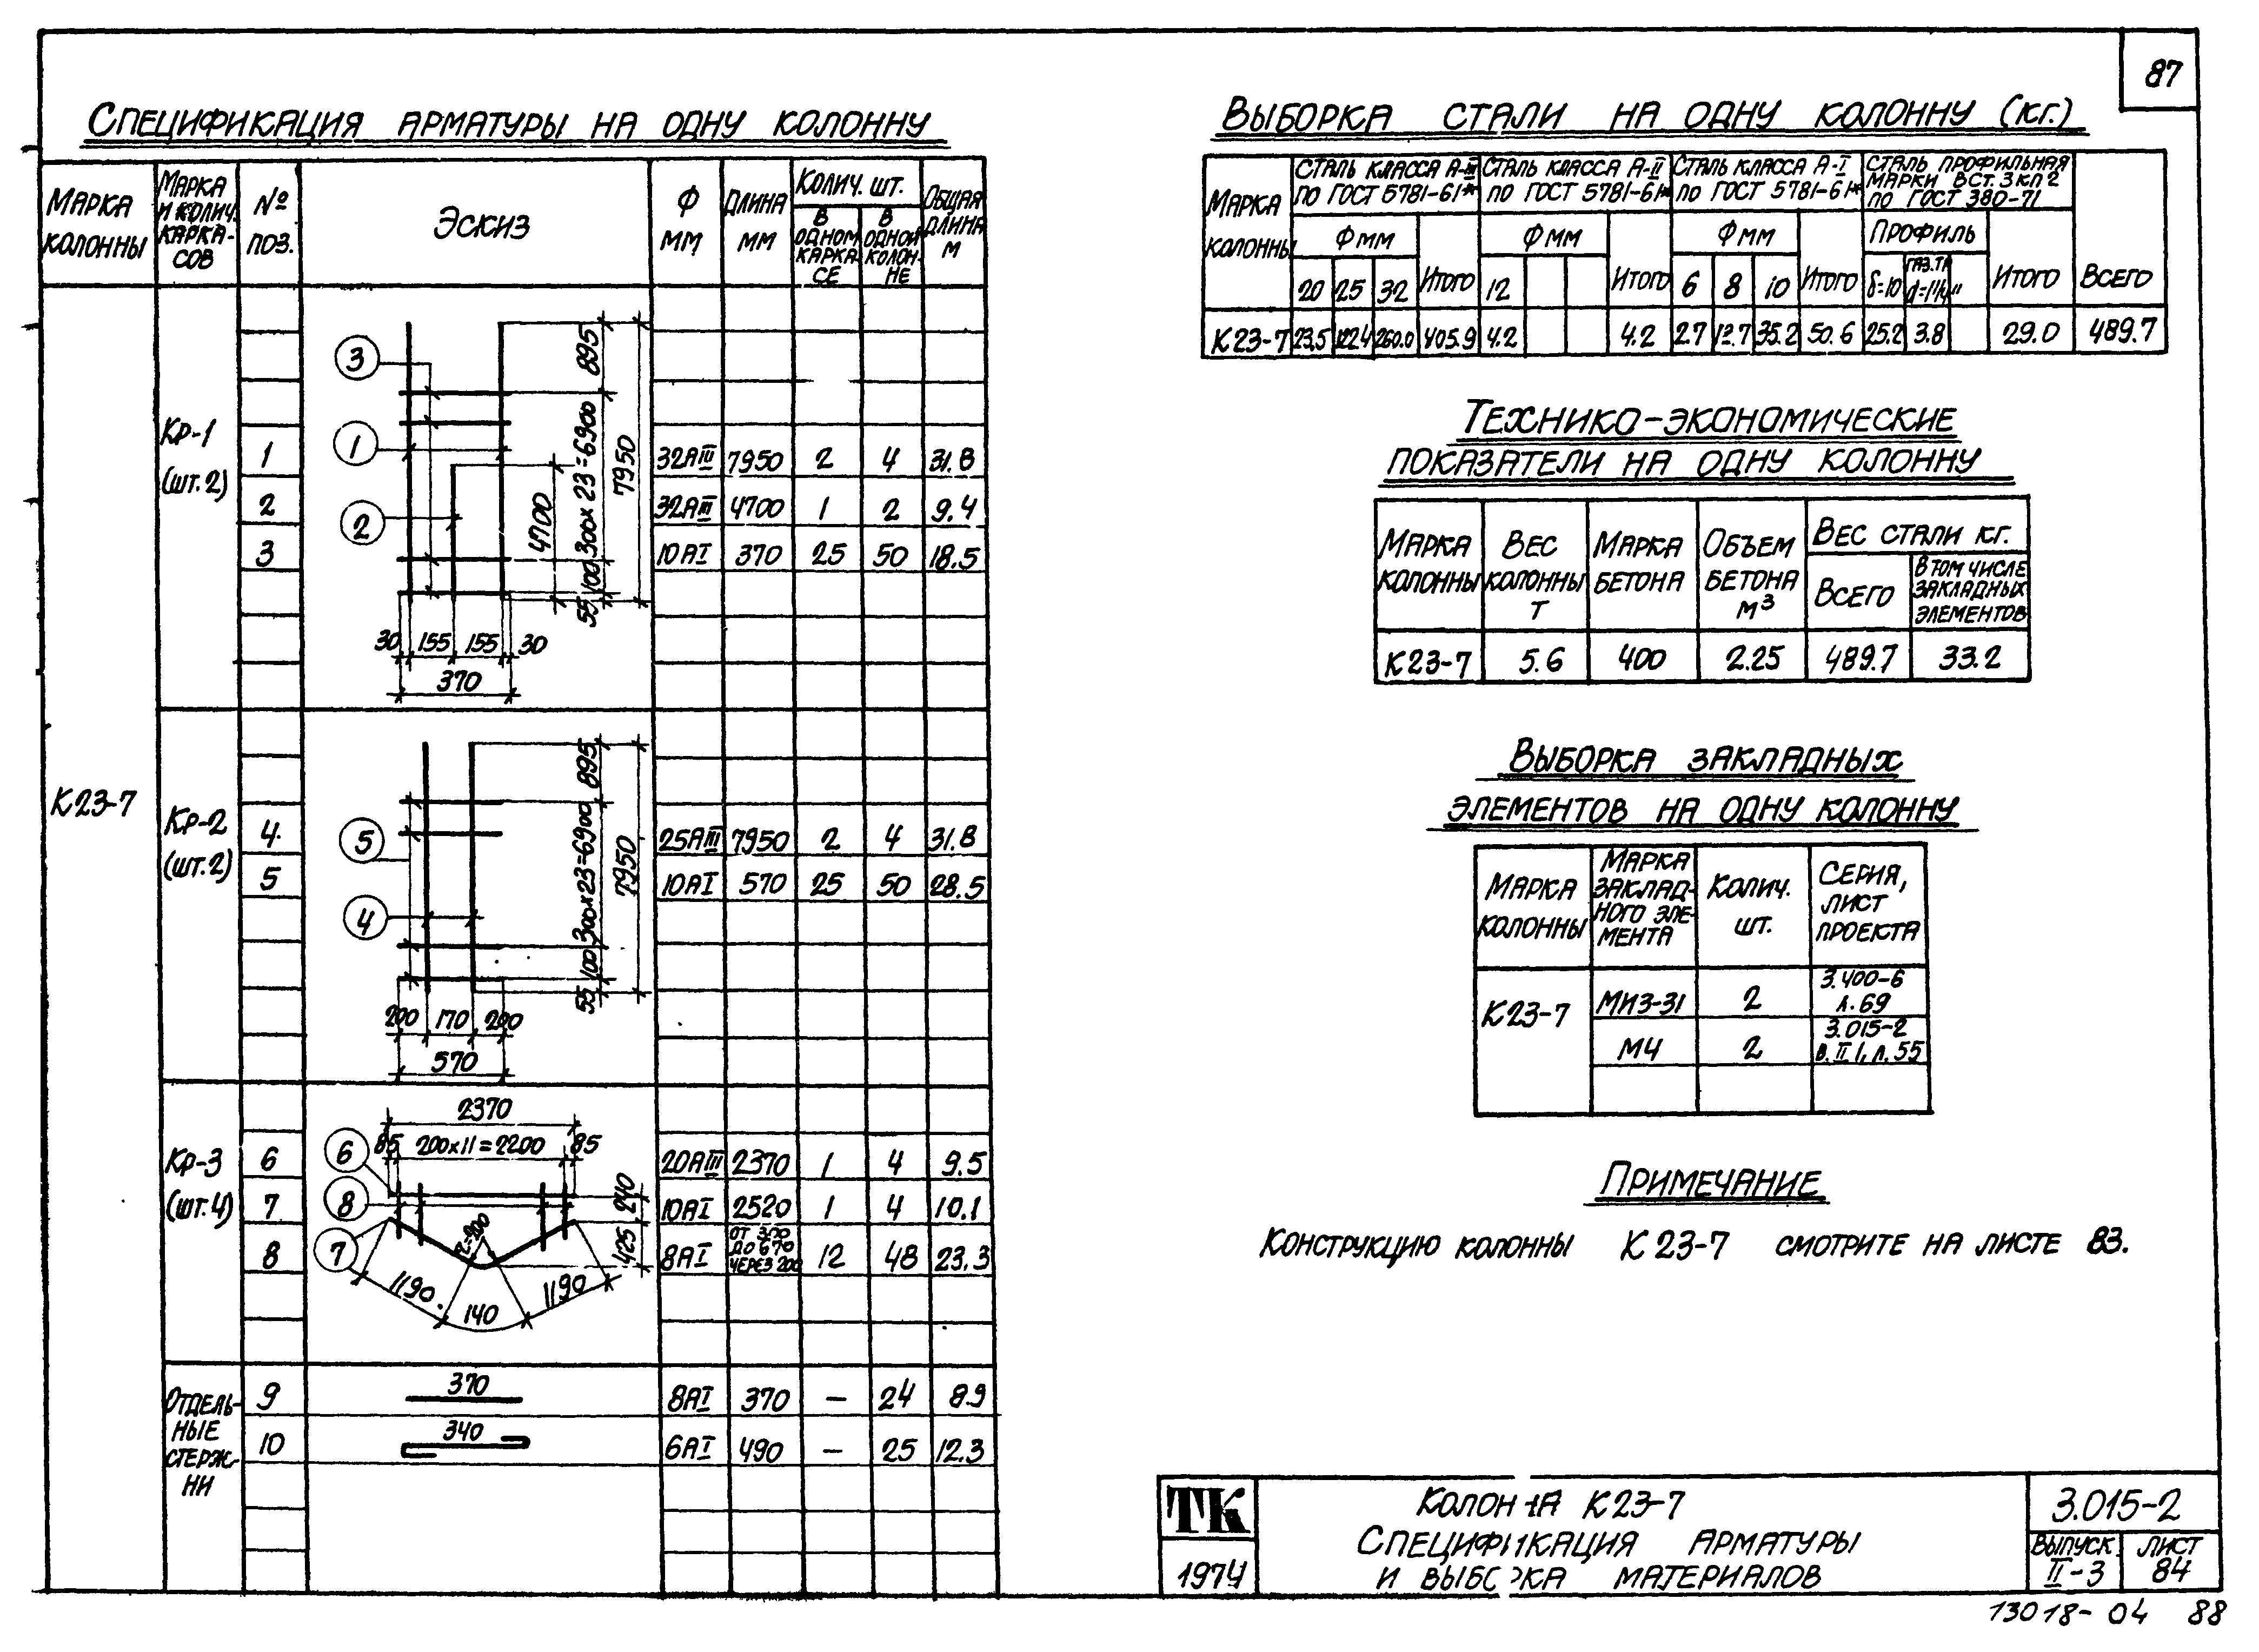 87
СПЕЦИФИКАЦИЯ АРМАТУРЫ НА ОДНУ КОЛОННУ
МАРКА КОЛОННЫ
МАРКА И КОЛИЧ. КАРКАСОВ
№ ПОЗ.
ЭСКИЗ
Ф ММ
ДЛИНА ММ
КОЛИЧ. ШТ.
В ОДНОМ КАРКАСЕ
В ОДНОЙ КОЛОННЕ
ОБЩАЯ ДЛИНА М
К23-7
КР-1 (ШТ. 2)
1 32АIII 7950 2 4 31.8
2 32АIII 4700 1 2 9.4
3 10АI 370 25 50 18.5
3
1
2
895
300х23=6900
100
55
7950
4700
30 155 155 30
370
КР-2 (ШТ. 2)
4 25АIII 7950 2 4 31.8
5 10АI 570 25 50 28.5
5
4
895
300х23=6900
100
55
7950
200 170 200
570
КР-3 (ШТ. 4)
6 20АIII 2370 1 4 9.5
7 10АI 2520 1 4 10.1
8 8АI ДО 670 ЧЕРЕЗ 200 12 48 23.3
2370
85 200х11=2200 85
6
8
7
240
425
1190
140
1190
ОТДЕЛЬНЫЕ СТЕРЖНИ
9 370 8АI 370 — 24 8.9
10 340 6АI 490 — 25 12.3
ВЫБОРКА СТАЛИ НА ОДНУ КОЛОННУ (КГ.)
МАРКА КОЛОННЫ
СТАЛЬ КЛАССА А-III ПО ГОСТ 5781-61*
СТАЛЬ КЛАССА А-II ПО ГОСТ 5781-61*
СТАЛЬ КЛАССА А-I ПО ГОСТ 5781-61*
СТАЛЬ ПРОФИЛЬНАЯ МАРКИ ВСТ. 3 КП 2 ПО ГОСТ 380-71
ВСЕГО
ФММ ФММ ФММ ПРОФИЛЬ
20 25 32 ИТОГО 12 ИТОГО 6 8 10 ИТОГО δ=10 ГАЗ.ТР. d=1¼" ИТОГО
К23-7 23.5 122.4 260.0 405.9 4.2 4.2 2.7 12.7 35.2 50.6 25.2 3.8 29.0 489.7
ТЕХНИКО-ЭКОНОМИЧЕСКИЕ
ПОКАЗАТЕЛИ НА ОДНУ КОЛОННУ
МАРКА КОЛОННЫ
ВЕС КОЛОННЫ Т
МАРКА БЕТОНА
ОБЪЕМ БЕТОНА М³
ВЕС СТАЛИ КГ.
ВСЕГО
В ТОМ ЧИСЛЕ ЗАКЛАДНЫХ ЭЛЕМЕНТОВ
К23-7 5.6 400 2.25 489.7 33.2
ВЫБОРКА ЗАКЛАДНЫХ
ЭЛЕМЕНТОВ НА ОДНУ КОЛОННУ
МАРКА КОЛОННЫ
МАРКА ЗАКЛАДНОГО ЭЛЕМЕНТА
КОЛИЧ. ШТ.
СЕРИЯ, ЛИСТ ПРОЕКТА
К23-7
МИЗ-31 2 3.400-6 Л. 69
М4 2 3.015-2 В. II 1, Л. 55
ПРИМЕЧАНИЕ
КОНСТРУКЦИЮ КОЛОННЫ К 23-7 СМОТРИТЕ НА ЛИСТЕ 83.
ТК
1974
КОЛОННА К23-7
СПЕЦИФИКАЦИЯ АРМАТУРЫ
И ВЫБОРКА МАТЕРИАЛОВ
3.015-2
ВЫПУСК II-3
ЛИСТ 84
13018-04 88